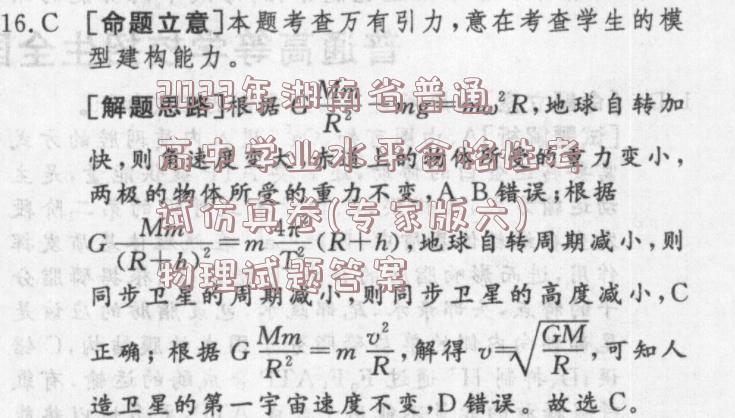 16.C [命题立意]本题考查万有引力,意在考查学生的模
型建构能力。
[解题思路]根据 G Mm/R² - mg = mω²R,地球自转加
快,则角速度变大,赤道上的物体所受的重力变小,
两极的物体所受的重力不变,A、B错误;根据
G Mm/(R+h)² = m 4π²/T² (R+h),地球自转周期减小,则
同步卫星的周期减小,则同步卫星的高度减小,C
正确;根据 G Mm/R² = m v²/R,解得 v=√(GM/R),可知人
造卫星的第一宇宙速度不变,D错误。故选C。
2022年湖南省普通
高中学业水平合格性考
试仿真卷(专家版六)
物理试题答案